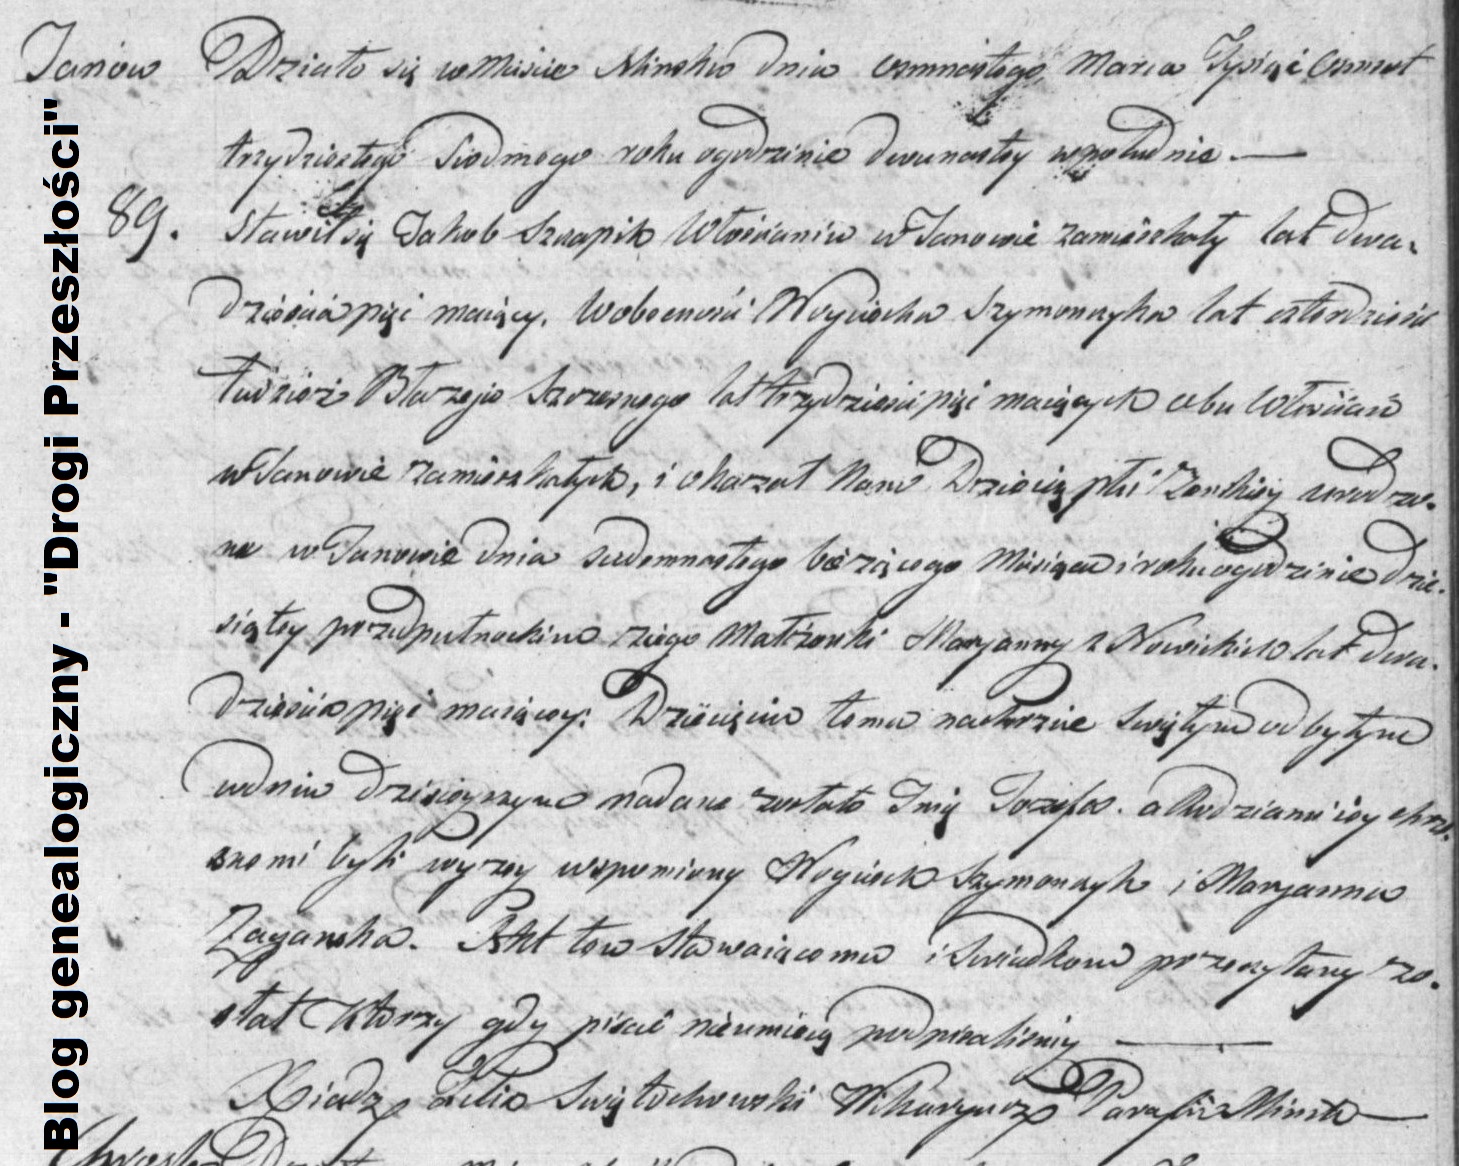 Janów
Działo się w Mieście Mińsku dnia osmnastego Marca Tysiąc Osmset
trzydziestego siodmego roku ogodzinie dwunastey wpołudnie. —
89. Stawił się Jakob Szczapik Włościanin w Janowie zamieszkały lat dwa-
dzieścia pięć maiący. Wobecności Woyciecha Szymonczyka lat czterdzieści
tudzież Błazeja Szczesnego lat trzydzieści pięć maiących obu Włościan
w Janowie zamieszkałych, i okazał Nam Dziecię płci Zenskiey urodzo-
ne w Janowie dnia siedemnastego bieżącego Miesiąca i roku ogodzinie dzie-
siątey przedpułnockiem z iego Małżonki Maryanny z Nowickich lat dwa-
dzieścia pięć maiącey: Dziecięciu temu nachrzcie świętym odbytym
wdniu dzisieyszym nadane zostało Imię Jozefa. a Rodzicami iey chrze-
snemi byli wyzey wspomiony Woyciech Szymonczyk i Maryanna
Zaganska. Akt ten stawaiącemu i Swiadkom przeczytany zo-
stał Ktorzy gdy pisać nieumieią podpisaliśmy —
Xiądz Felix Świętochowski Wikaryusz Parafii Mińsk —
Blog genealogiczny - "Drogi Przeszłości"